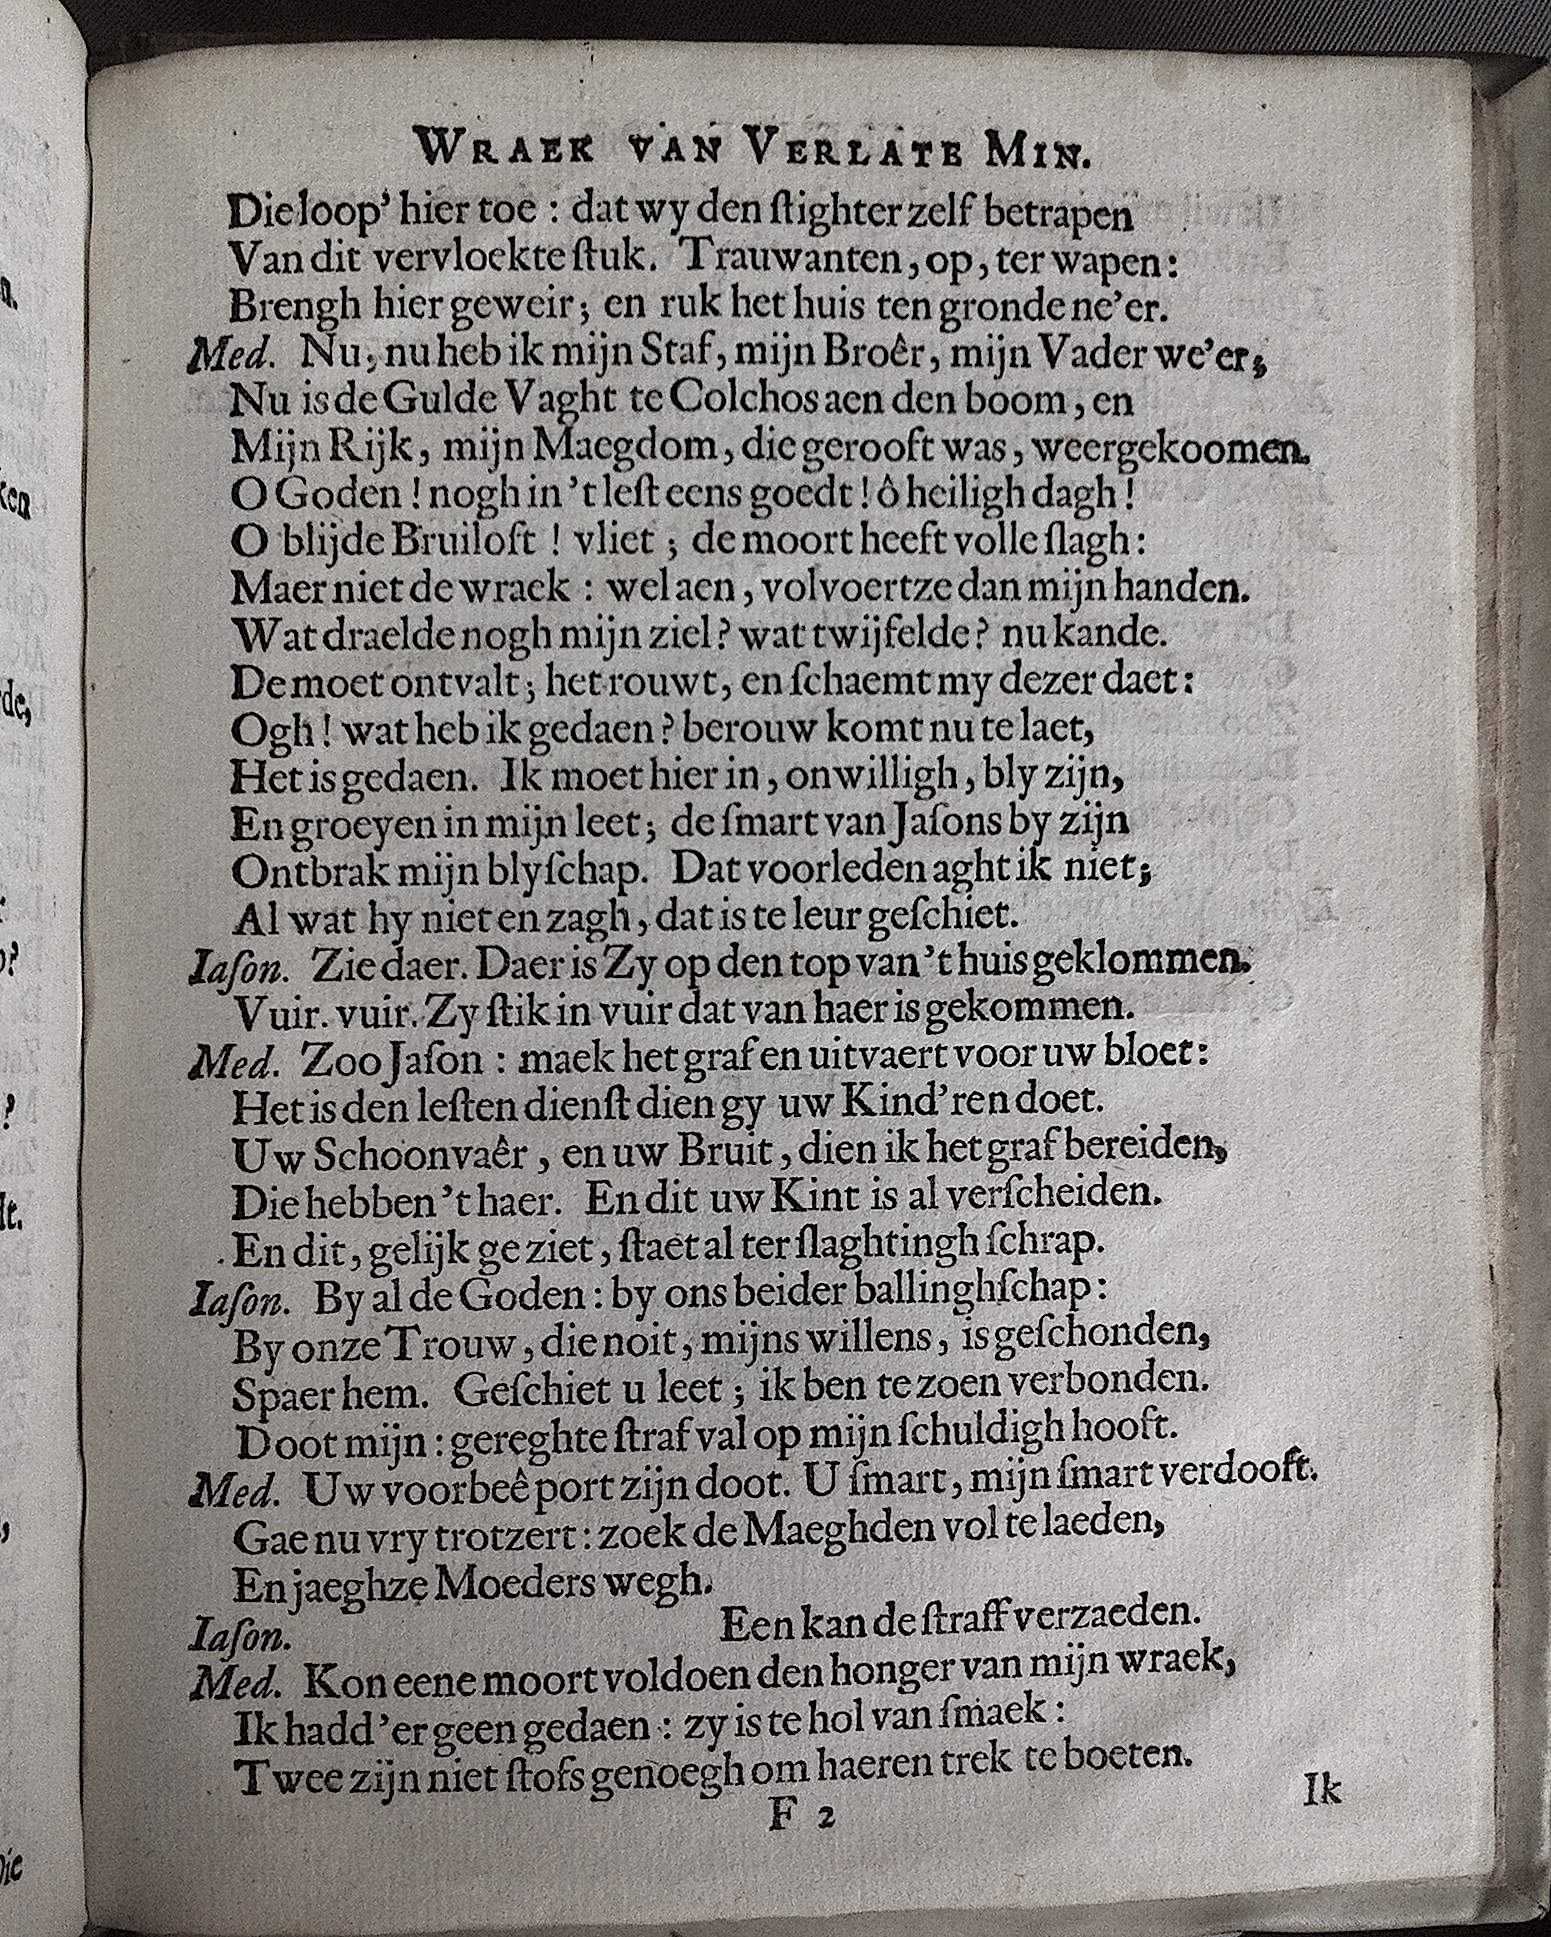 WRAEK VAN VERLATE MIN.
Die loop' hier toe : dat wy den ſtighter zelf betrapen
Van dit vervloekte ſtuk. Trauwanten, op, ter wapen:
Brengh hier geweir; en ruk het huis ten gronde ne'er.
Med. Nu, nu heb ik mijn Staf, mijn Broêr, mijn Vader we'er,
Nu is de Gulde Vaght te Colchos aen den boom, en
Mijn Rijk, mijn Maegdom, die gerooft was, weergekoomen.
O Goden ! nogh in 't leſt eens goedt ! ô heiligh dagh !
O blijde Bruiloft ! vliet ; de moort heeft volle ſlagh:
Maer niet de wraek : wel aen, volvoertze dan mijn handen.
Wat draelde nogh mijn ziel? wat twijfelde? nu kande.
De moet ontvalt; het rouwt, en ſchaemt my dezer daet:
Ogh! wat heb ik gedaen? berouw komt nu te laet,
Het is gedaen. Ik moet hier in, onwilligh, bly zijn,
En groeyen in mijn leet; de ſmart van Jaſons by zijn
Ontbrak mijn blyſchap. Dat voorleden aght ik niet;
Al wat hy niet en zagh, dat is te leur geſchiet.
Iaſon. Zie daer. Daer is Zy op den top van 't huis geklommen.
Vuir. vuir. Zy ſtik in vuir dat van haer is gekommen.
Med. Zoo Jaſon : maek het graf en uitvaert voor uw bloet:
Het is den leſten dienſt dien gy uw Kind'ren doet.
Uw Schoonvaêr, en uw Bruit, dien ik het graf bereiden,
Die hebben 't haer. En dit uw Kint is al verſcheiden.
En dit, gelijk ge ziet, ſtaet al ter ſlaghtingh ſchrap.
Iaſon. By al de Goden : by ons beider ballinghſchap:
By onze Trouw, die noit, mijns willens, is geſchonden,
Spaer hem. Geſchiet u leet; ik ben te zoen verbonden.
Doot mijn : gereghte ſtraf val op mijn ſchuldigh hooft.
Med. Uw voorbeê port zijn doot. U ſmart, mijn ſmart verdooft.
Gae nu vry trotzert : zoek de Maeghden vol te laeden,
En jaeghze Moeders wegh.
Iaſon. Een kan de ſtraff verzaeden.
Med. Kon eene moort voldoen den honger van mijn wraek,
Ik hadd' er geen gedaen : zy is te hol van ſmaek :
Twee zijn niet ſtofs genoegh om haeren trek te boeten.
F 2
Ik